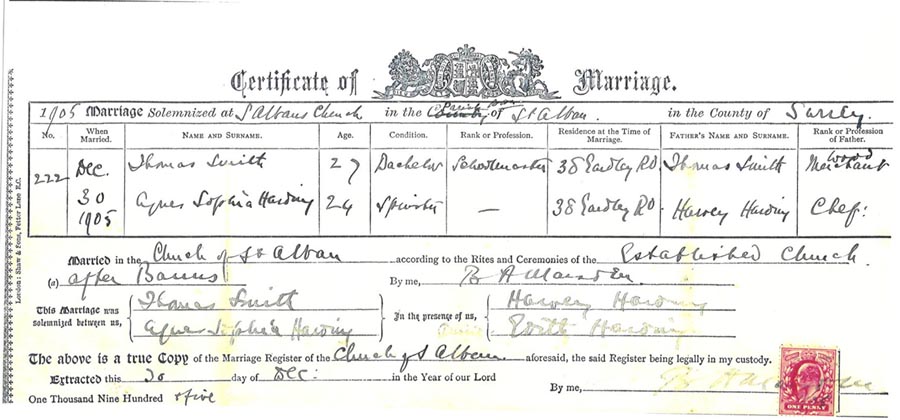 Certificate of Marriage.
1905 Marriage Solemnized at St Albans Church in the Parish of St Alban. in the County of Surrey
No. When Married. Name and Surname. Age. Condition. Rank or Profession. Residence at the Time of Marriage. Father's Name and Surname. Rank or Profession of Father.
222 Dec. 30 1905
Thomas Smith 27 Bachelor Schoolmaster 38 Eardley RD Thomas Smith Wood Merchant
Agnes Sophia Harding 24 Spinster — 38 Eardley RD Harvey Harding Chef:
Married in the Church of St Alban according to the Rites and Ceremonies of the Established Church.
(a) after Banns By me, B A Marsden
This Marriage was solemnized between us, Thomas Smith Agnes Sophia Harding In the presence of us, Harvey Harding Edith Harding
The above is a true Copy of the Marriage Register of the Church of St Alban aforesaid, the said Register being legally in my custody.
Extracted this 30 day of Dec: in the Year of our Lord
One Thousand Nine Hundred & five By me,
ONE PENNY
London: Shaw & Sons, Fetter Lane E.C.